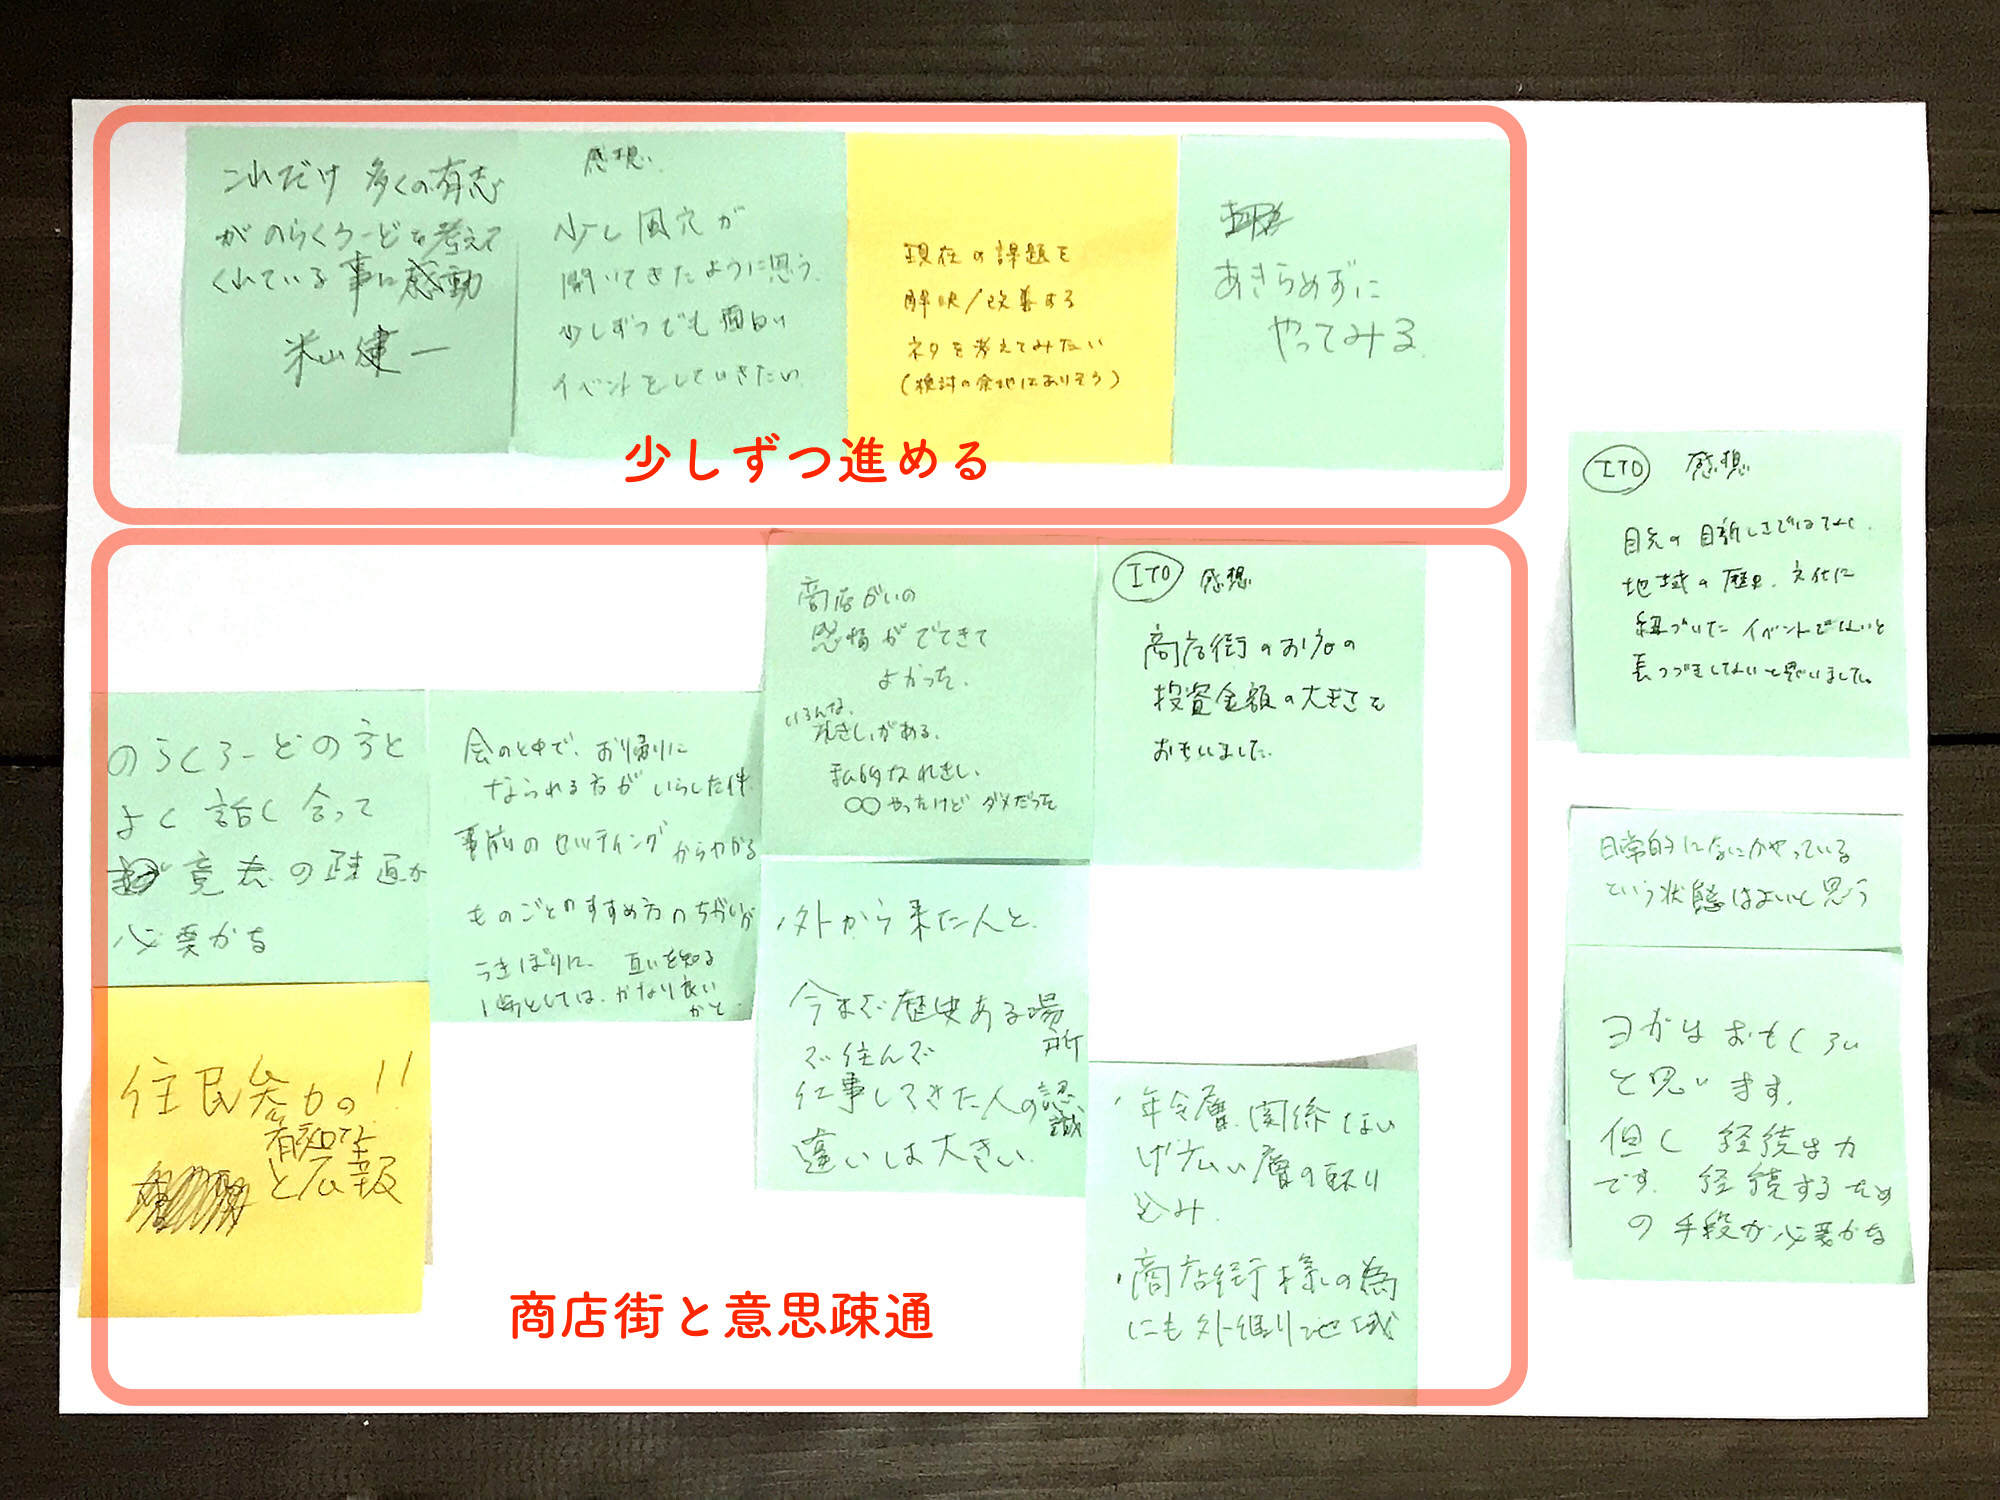 これだけ 多くの有志
がのらくろードを考えて
くれている事に感動
米山健一
感想.
少し風穴が
開いてきたように思う.
少しずつでも面白い
イベントをしていきたい.
現在の課題を
解決/改善する
ネタを考えてみたい
(検討の余地はありそう)
あきらめずに
やってみる.
少しずつ進める
ITO 感想
目先の目新しさではなく.
地域の歴史、文化に
紐づいたイベントでないと
長つづきしないと思いました。
日常的になにかやっている
という状態はよいと思う
ヨガはおもしろい
と思います.
但し 経続は力
です. 経続するため
の手段が必要かな
のらくろードの方と
よく話し合って
意志の疎通が
必要かな
会のと中で、お帰りに
なられる方がいらした件.
事前のセッティングからわかる
ものごとのすすめ方のちがいが
うきぼりに. 互いを知る
1歩としては、かなり良い
かと.
商店がいの
感情がでてきて
よかった.
いろんな.
れきしがある.
私的なれきし.
〇〇やったけどダメだった
ITO 感想
商店街のお店の
投資金額の大きさを
おもいました.
・外から来た人と.
今まで歴史ある場所
で住んで
仕事してきた人の認識
違いは大きい.
・年令層.関係ない
広い層の取り
込み.
・商店街様の為
にも外堀り地域
住民参加の!!
有効性
と広報
商店街と意思疎通